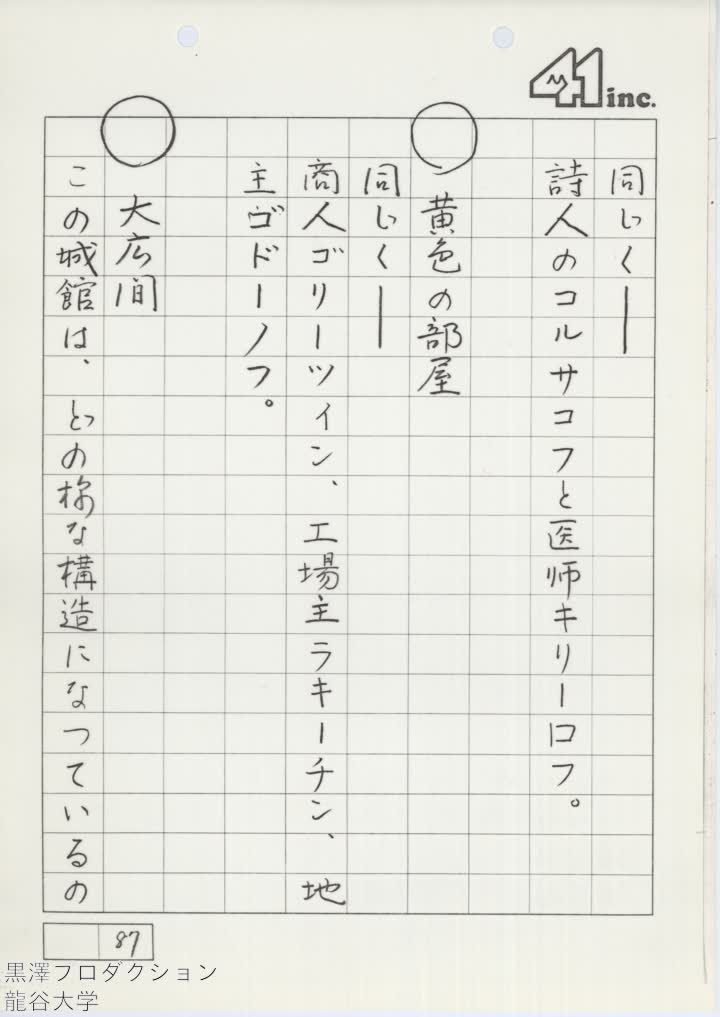 41 inc.
同じく──
詩人のコルサコフと医師キリーロフ。
黄色の部屋
同じく──
商人ゴリーツイン、工場主ラキーチン、地
主ゴドーノフ。
大広間
この城館は、どの様な構造になつているの
87
黒澤プロダクション
龍谷大学